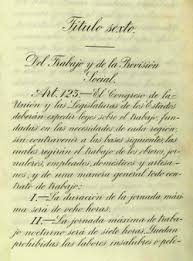 Título sexto.
Del Trabajo y de la Previsión
Social.
Art. 123.—El Congreso de la
Unión y las Legislaturas de los Estados
deberán expedir leyes sobre el trabajo, fun-
dadas en las necesidades de cada región,
sin contravenir a las bases siguientes, las
cuales regirán el trabajo de los obreros, jor-
naleros, empleados, domésticos y artesa-
nos, y de una manera general todo con-
trato de trabajo:
I.—La duración de la jornada máxi-
ma será de ocho horas.
II.—La jornada máxima de traba-
jo nocturno será de siete horas. Quedan
prohibidas las labores insalubres o peli-